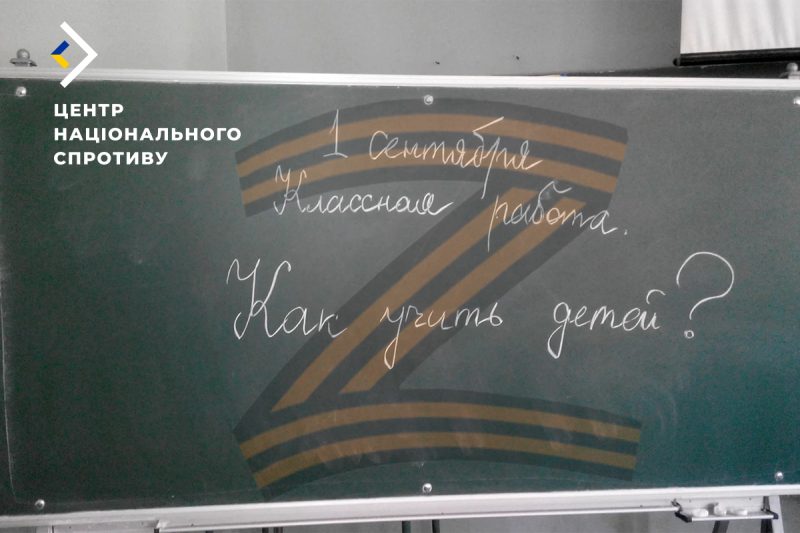 ЦЕНТР
НАЦІОНАЛЬНОГО
СПРОТИВУ
1 сентября
Классная работа.
Как учить детей?